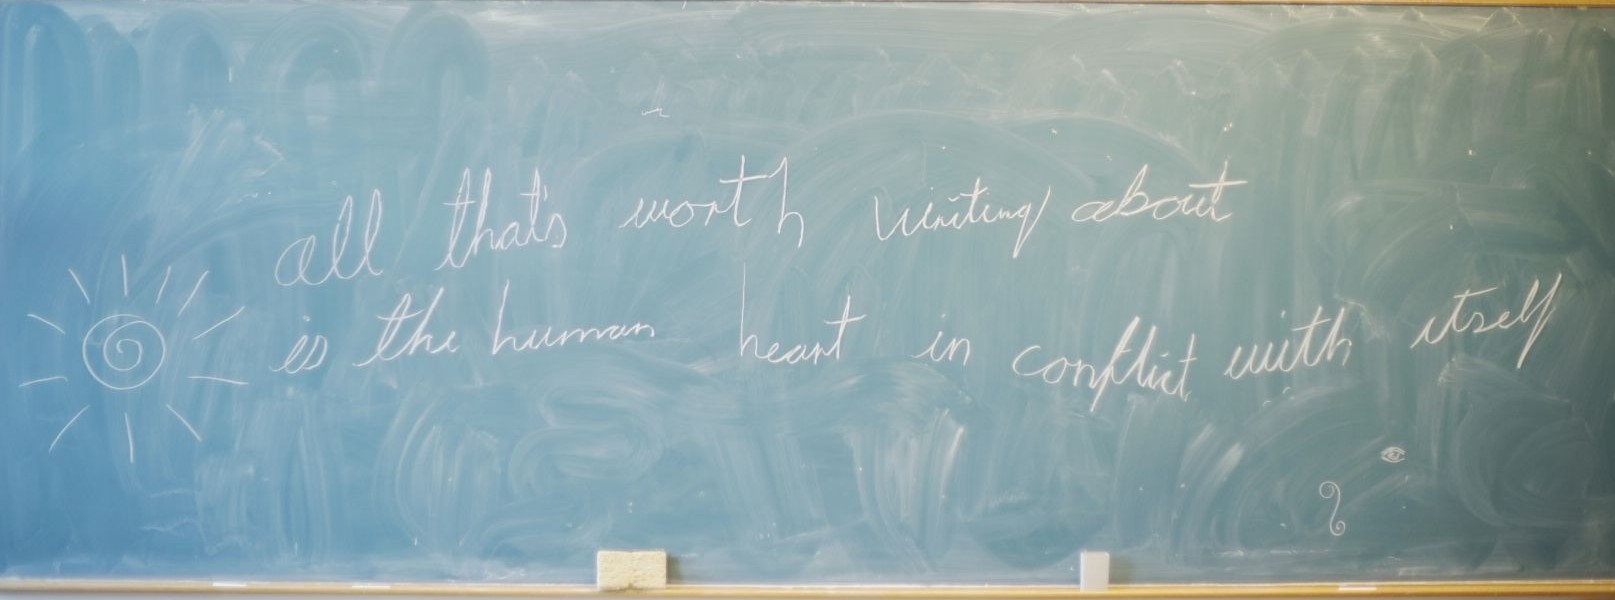 all that's worth writing about
is the human heart in conflict with itself